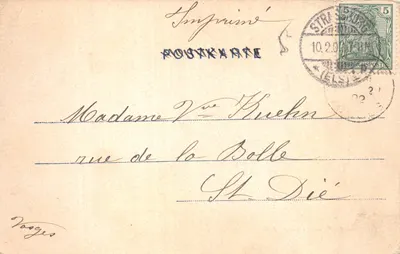 Imprimé
POSTKARTE
5
STRASSBURG
10.2.0
(ELS)
Madame Vve Kuehn
rue de la Bolle
St. Dié
Vosges